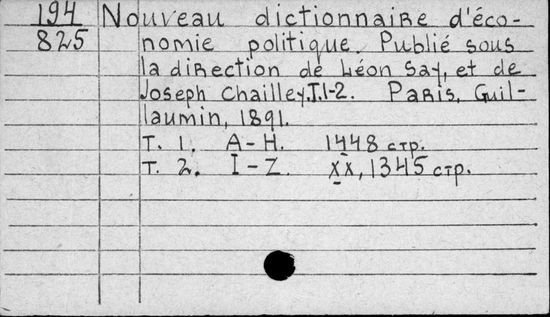 194 Nouveau dictionnaire d'éco-
825 nomie politique. Publié sous
la direction de Léon Say, et de
Joseph Chailley. T. 1-2. Paris, Guil-
laumin, 1891.
T. 1. A-H. 1448 стр.
T. 2. I-Z. XX, 1345 стр.